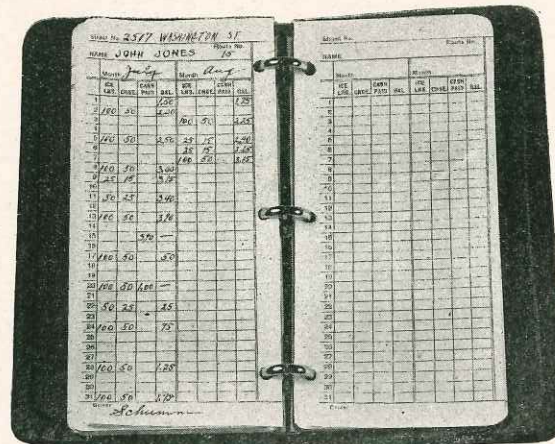 Street No. 2517 WASHINGTON ST
Route No.
NAME JOHN JONES 15
Month July Month Aug
ICE LBS. CHGE. CASH PAID BAL. ICE LBS. CHGE. CASH PAID BAL.
1 1.50 1.75
2 100 50
3 100 50 2.25
4
5 100 50 2.50 25 15 2.40
6 25 15
7 100 50 3.15
8 100 50 3.00
9 25 15 3.15
10
11 50 25 3.40
12
13 100 50 3.90
14
15 3.90 —
16
17 100 50 50
18
19
20 100 50 1.00 —
21
22 50 25 25
23
24 100 50 75
25
26
27
28 100 50 1.25
29
30
31 100 50 1.75
Driver
Schumm
Street No.
Route No.
NAME
Month Month
ICE LBS. CHGE. CASH PAID BAL. ICE LBS. CHGE. CASH PAID BAL.
1
2
3
4
5
6
7
8
9
10
11
12
13
14
15
16
17
18
19
20
21
22
23
24
25
26
27
28
29
30
31
Driver